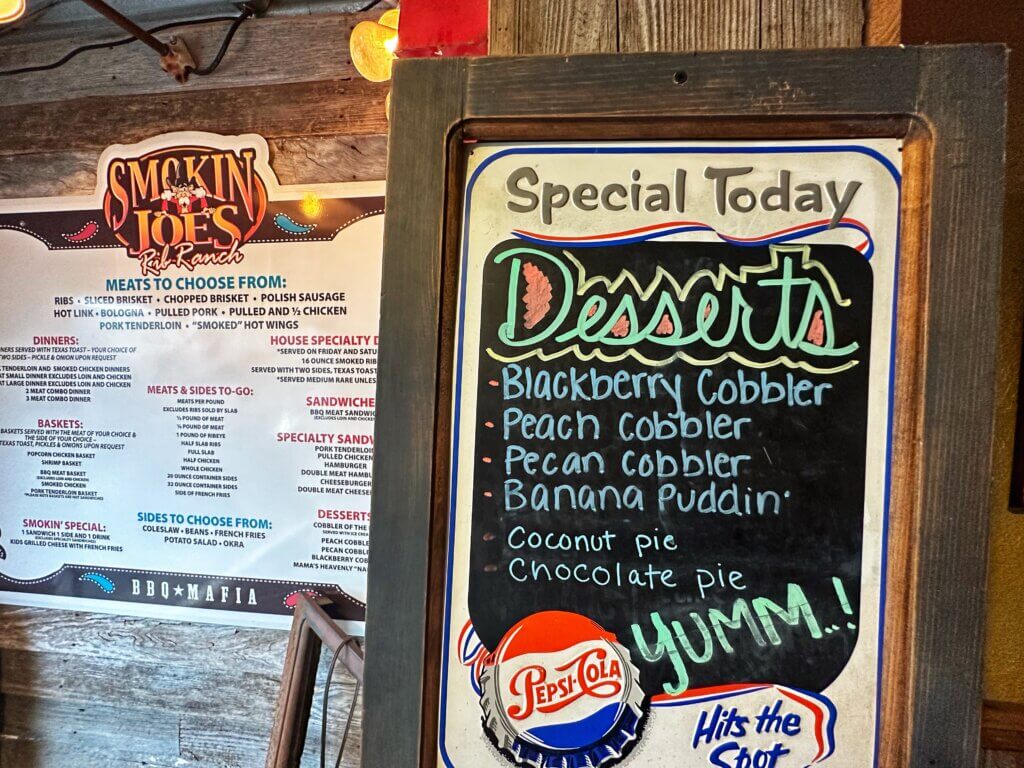 SMOKIN
JOE'S
Rib Ranch
MEATS TO CHOOSE FROM:
RIBS • SLICED BRISKET • CHOPPED BRISKET • POLISH SAUSAGE
HOT LINK • BOLOGNA • PULLED PORK • PULLED AND ½ CHICKEN
PORK TENDERLOIN • "SMOKED" HOT WINGS
DINNERS:
SERVED WITH TEXAS TOAST – YOUR CHOICE OF
TWO SIDES – PICKLE & ONION UPON REQUEST
TENDERLOIN AND SMOKED CHICKEN DINNERS
SMALL DINNER EXCLUDES LOIN AND CHICKEN
LARGE DINNER EXCLUDES LOIN AND CHICKEN
2 MEAT COMBO DINNER
3 MEAT COMBO DINNER
BASKETS:
BASKETS SERVED WITH THE MEAT OF YOUR CHOICE &
THE SIDE OF YOUR CHOICE –
TEXAS TOAST, PICKLES & ONIONS UPON REQUEST
POPCORN CHICKEN BASKET
SHRIMP BASKET
BBQ MEAT BASKET
(EXCLUDES LOIN AND CHICKEN)
SMOKED CHICKEN
PORK TENDERLOIN BASKET
*PLEASE NOTE BASKETS ARE NOT SANDWICHES
SMOKIN' SPECIAL:
1 SANDWICH 1 SIDE AND 1 DRINK
(EXCLUDES SPECIALTY SANDWICHES)
KIDS GRILLED CHEESE WITH FRENCH FRIES
MEATS & SIDES TO-GO:
MEATS PER POUND
EXCLUDES RIBS SOLD BY SLAB
½ POUND OF MEAT
¼ POUND OF MEAT
1 POUND OF RIBEYE
HALF SLAB RIBS
FULL SLAB
HALF CHICKEN
WHOLE CHICKEN
20 OUNCE CONTAINER SIDES
32 OUNCE CONTAINER SIDES
SIDE OF FRENCH FRIES
SIDES TO CHOOSE FROM:
COLESLAW • BEANS • FRENCH FRIES
POTATO SALAD • OKRA
HOUSE SPECIALTY D
*SERVED ON FRIDAY AND SATU
16 OUNCE SMOKED RIB
SERVED WITH TWO SIDES, TEXAS TOAST
*SERVED MEDIUM RARE UNLES
SANDWICHE
BBQ MEAT SANDWIC
(EXCLUDES LOIN AND CHICKEN
SPECIALTY SANDW
PORK TENDERLOIN
PULLED CHICKEN
HAMBURGER
DOUBLE MEAT HAMBU
CHEESEBURGER
DOUBLE MEAT CHEESE
DESSERTS
COBBLER OF THE
SERVED WITH ICE CREA
PEACH COBBLE
PECAN COBBLE
BLACKBERRY COB
MAMA'S HEAVENLY "NA
BBQ★MAFIA
Special Today
Desserts
Blackberry Cobbler
Peach Cobbler
Pecan Cobbler
Banana Puddin'
Coconut pie
Chocolate pie
YUMM..!
PEPSI-COLA
Hits the
Spot